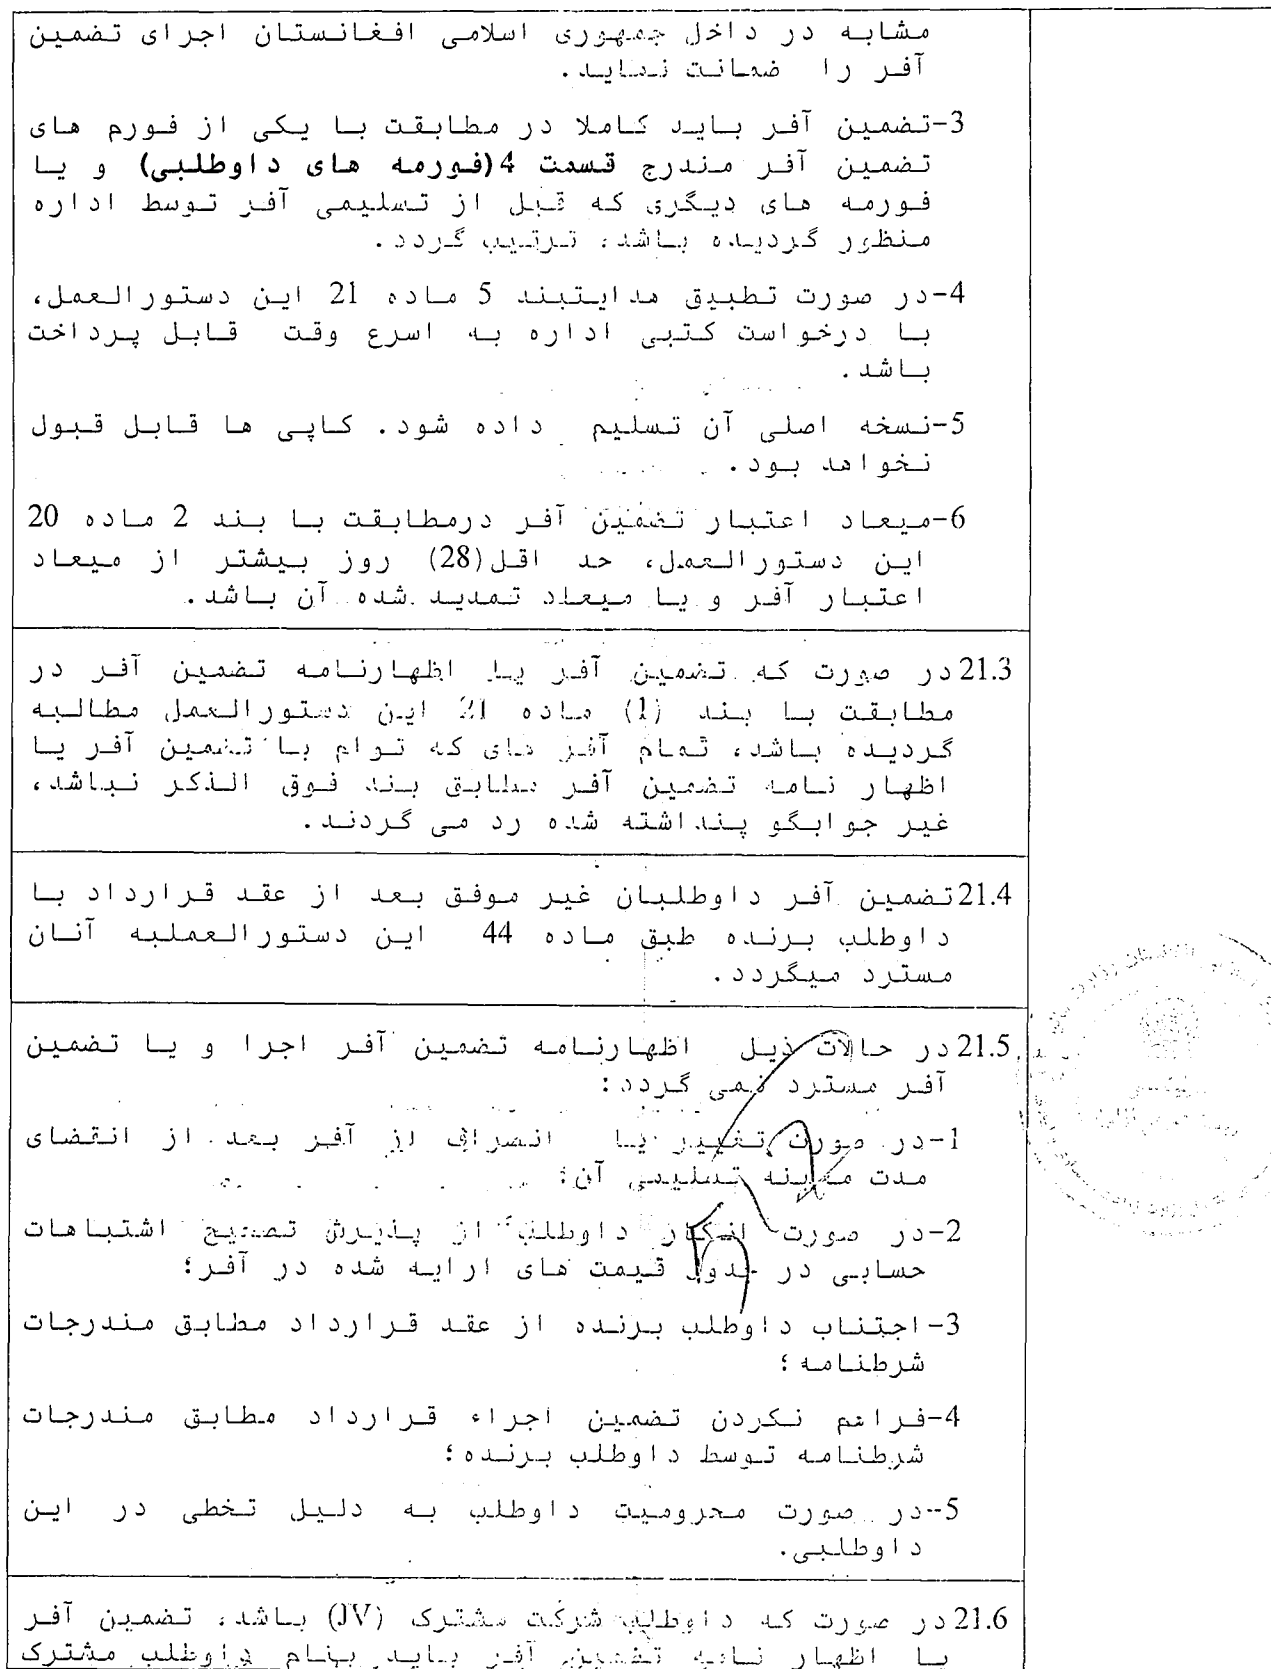 مشابه در داخل جمهوری اسلامی افغانستان اجرای تضمین
آفر را ضمانت نماید.
3-تضمین آفر باید کاملا در مطابقت با یکی از فورم های
تضمین آفر مندرج قسمت 4(فورمه های داوطلبی) و یا
فورمه های دیگری که قبل از تسلیمی آفر توسط اداره
منظور گردیده باشد، ترتیب گردد.
4-در صورت تطبیق هدایتبند 5 ماده 21 این دستورالعمل،
با درخواست کتبی اداره به اسرع وقت قابل پرداخت
باشد.
5-نسخه اصلی آن تسلیم داده شود. کاپی ها قابل قبول
نخواهد بود.
6-میعاد اعتبار تضمین آفر درمطابقت با بند 2 ماده 20
این دستورالعمل، حد اقل(28) روز بیشتر از میعاد
اعتبار آفر و یا میعاد تمدید شده آن باشد.
21.3 در صورت که تضمین آفر یا اظهارنامه تضمین آفر در
مطابقت با بند (1) ماده 21 این دستورالعمل مطالبه
گردیده باشد، تمام آفر های که توام با تضمین آفر یا
اظهار نامه تضمین آفر مطابق بند فوق الذکر نباشد،
غیر جوابگو پنداشته شده رد می گردند.
21.4 تضمین آفر داوطلبان غیر موفق بعد از عقد قرارداد با
داوطلب برنده طبق ماده 44 این دستورالعملبه آنان
مسترد میگردد.
21.5 در حالات ذیل اظهارنامه تضمین آفر اجرا و یا تضمین
آفر مسترد نمی گردد:
1-در صورت تغییر یا انصراف از آفر بعد از انقضای
مدت معینه تسلیمی آن؛
2-در صورت انکار داوطلب از پذیرش تصحیح اشتباهات
حسابی در جدول قیمت های ارایه شده در آفر؛
3-اجتناب داوطلب برنده از عقد قرارداد مطابق مندرجات
شرطنامه؛
4-فراهم نکردن تضمین اجراء قرارداد مطابق مندرجات
شرطنامه توسط داوطلب برنده؛
5-در صورت محرومیت داوطلب به دلیل تخطی در این
داوطلبی.
21.6 در صورت که داوطلب شرکت مشترک (JV) باشد، تضمین آفر
یا اظهار نامه تضمین آفر باید بنام داوطلب مشترک